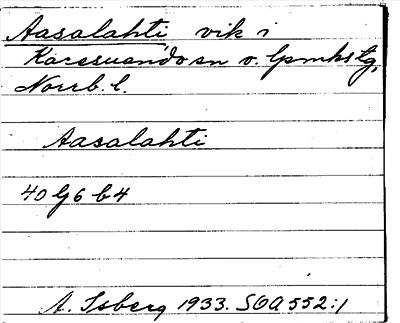 Aasalahti vik i
Karesuando sn o. lpmkstg,
Norrb. l.
Aasalahti
40 G 6 b 4
A. Isberg 1933. SOA 552:1